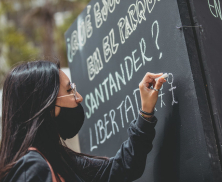 ¿QUÉ ES
EN EL PARQUE
SANTANDER?
LIBERTAD